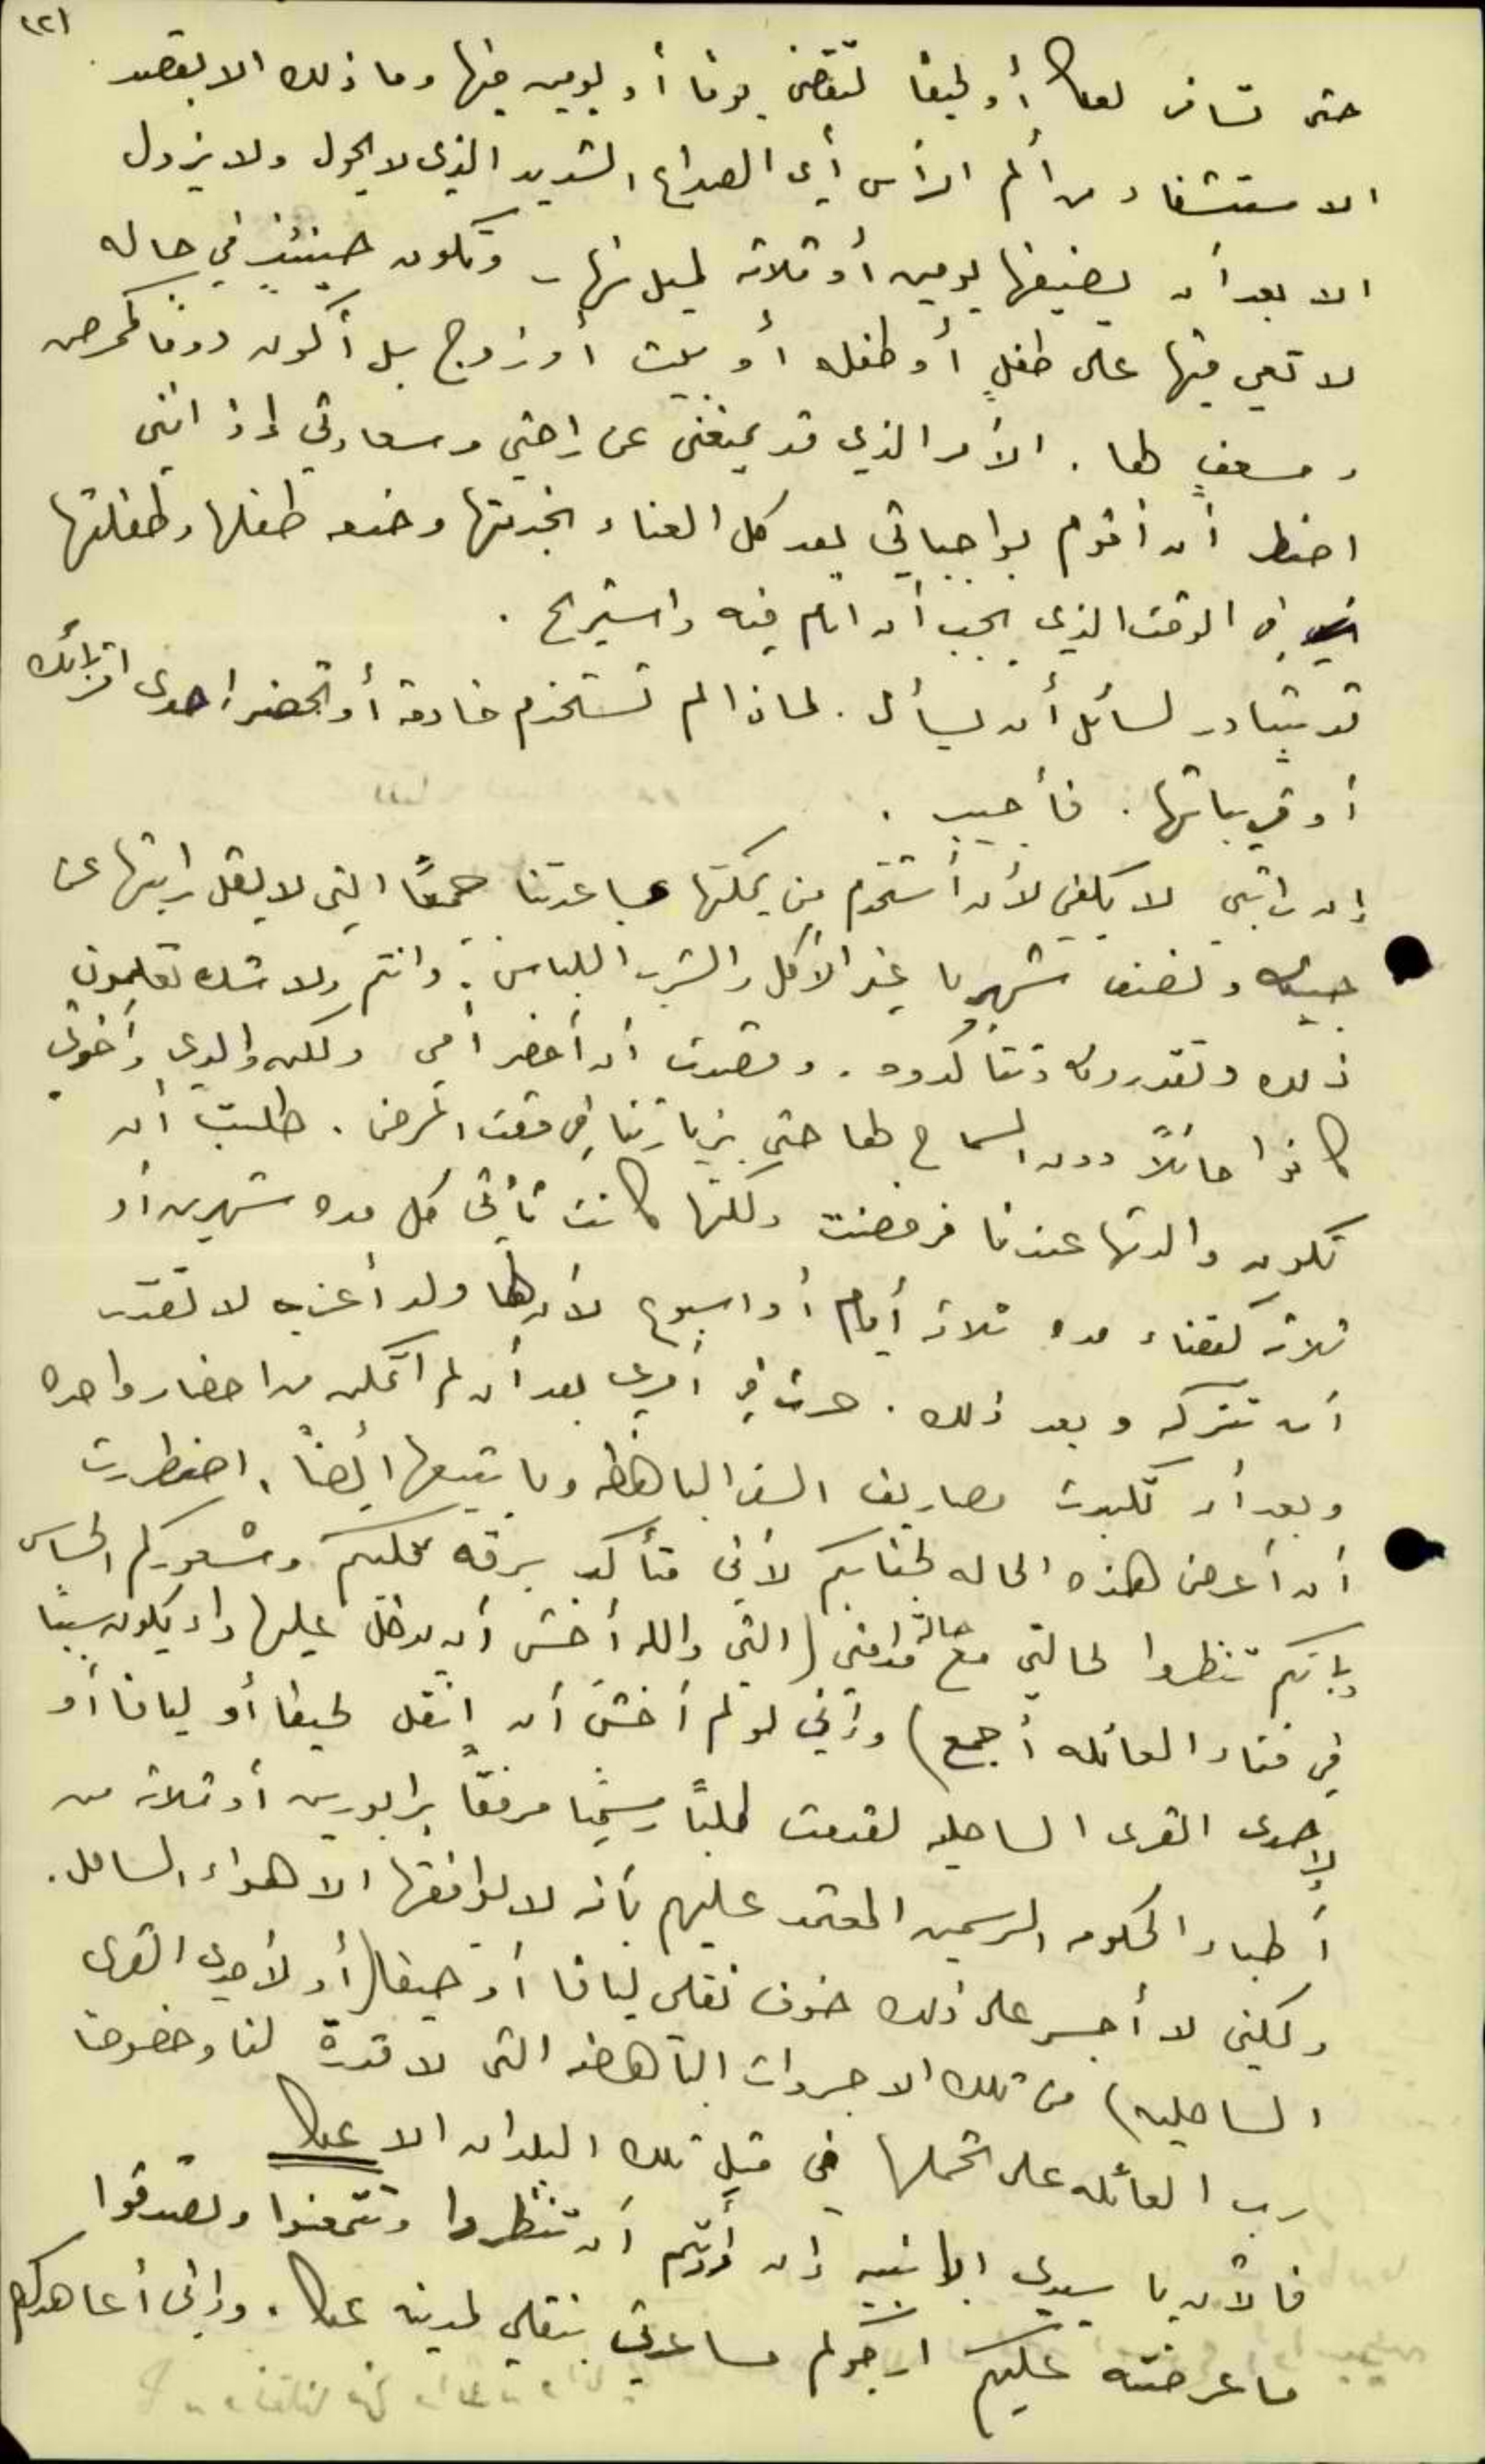 (٢)
حتى تسافر لعكا أو لحيفا لتقضي يوما أو يومين فيها وما ذلك الا بقصد
الاستشفاء من ألم الرأس أي الصداع الشديد الذي لا يحول ولا يزول
الا بعد أن يضيفها يومين أو ثلاثه ليل نهار وتكون حينئذٍ في حاله
لا تعي فيها على طفلٍ أو طفله أو بيت أو زوج بل أكون دوما كممرض
ومسعفٍ لها . الأمر الذي قد يمنعني عن راحتي وسعادتي إذ انني
اضطر أن أقوم بواجباتي بعد كل العناء بخدمتها وخدمة طفلها وطفلتها
في الوقت الذي يجب أن انام فيه واستريح .
قد يتبادر لسائل أن يسأل . لماذا لم تستخدم خادمة أو تحضر احدى اقربائك
أو قريباتها . فأجيب .
إن راتبي لا يكفي لأن أستخدم من يمكنها مساعدتنا جميعًا التي لا يقل راتبها عن
جنيه ونصف شهريا غير الأكل والشرب اللباس . وانتم ولا شك تعلمون
ذلك وتقدرونه وتتأكدوه . وقصدت أن أحضر أمي ولكن والدي وأخوتي
كانوا حائلاً دون السماح لها حتى بزيارتنا في وقت المرض . طلبت أن
تكون والدتها عندنا فرفضت ولكنها كانت تأتي كل مده شهرين أو
ثلاثه لقضاء مده ثلاثه أيام أو اسبوع لأن لها ولد أعزب لا تقدر
أن تتركه وبعد ذلك . حرت في أمري بعد أن لم أتمكن من احضار واحده
وبعد أن تكبدت مصاريف السفر الباهظه وما يتبعها أيضًا . اضطررت
أن أعرض هذه الحاله لجنابكم لأني متأكد برقة قلبكم وشعوركم الحساس
بانكم تنظروا لحالتي مع حالة مدامتي (التي والله أخشى أن يدخل عليها داء يكون سببًا
في فناء العائله أجمع) وإني لو لم أخشَ أن انقل لحيفا أو ليافا أو
لإحدى القرى الساحليه لقدمت طلبًا رسميًا مرفقًا برابورين أو ثلاثه من
أطباء الحكومه الرسمين المعتمد عليهم بأنه لا يوافقها الا هواء الساحل .
ولكني لا أجسر على ذلك خوف نقلي ليافا أو حيفا (أو لأحدى القرى
الساحليه) من تلك الاجروات الباهضه التي لا قدرة لنا وخصوصا
رب العائله على تحملها في مثل تلك البلدان الا عكا
فالآن يا سيدي إن أردتم أن تنظروا وتتمعنوا وتصدقوا
ما عرضته عليكم ارجوكم مساعدتي بنقلي لمدينة عكا . وإني أعاهدكم